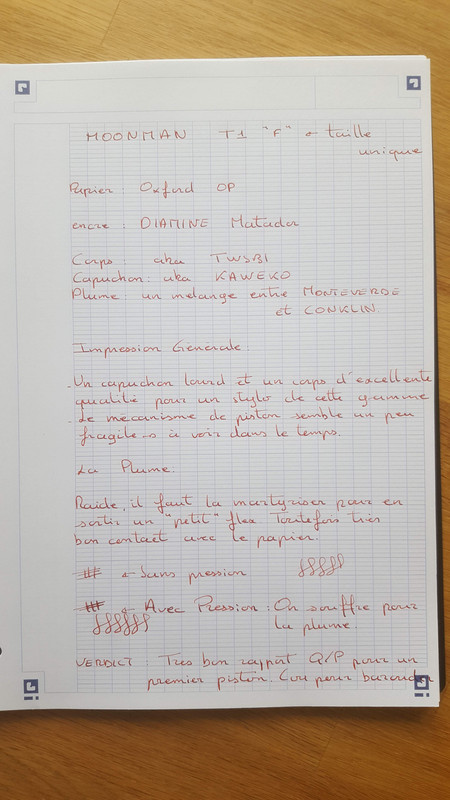 MOONMAN T1 "F" ← taille
unique
Papier : Oxford OP
encre : DIAMINE Matador
Corps : aka TWSBI
Capuchon : aka KAWEKO
Plume : un mélange entre MONTEVERDE
et CONKLIN.
Impression Generale.
- Un capuchon lourd et un corps d'excellente
qualité pour un stylo de cette gamme
- Le mécanisme de piston semble un peu
fragile → à voir dans le temps.
La Plume.
Raide, il faut la martyriser pour en
sortir un "petit" flex Toutefois très
bon contact avec le papier.
← Sans pression
← Avec Pression : On souffre pour
la plume.
VERDICT : Tres bon rapport Q/P pour un
premier piston. Cou pour barouder